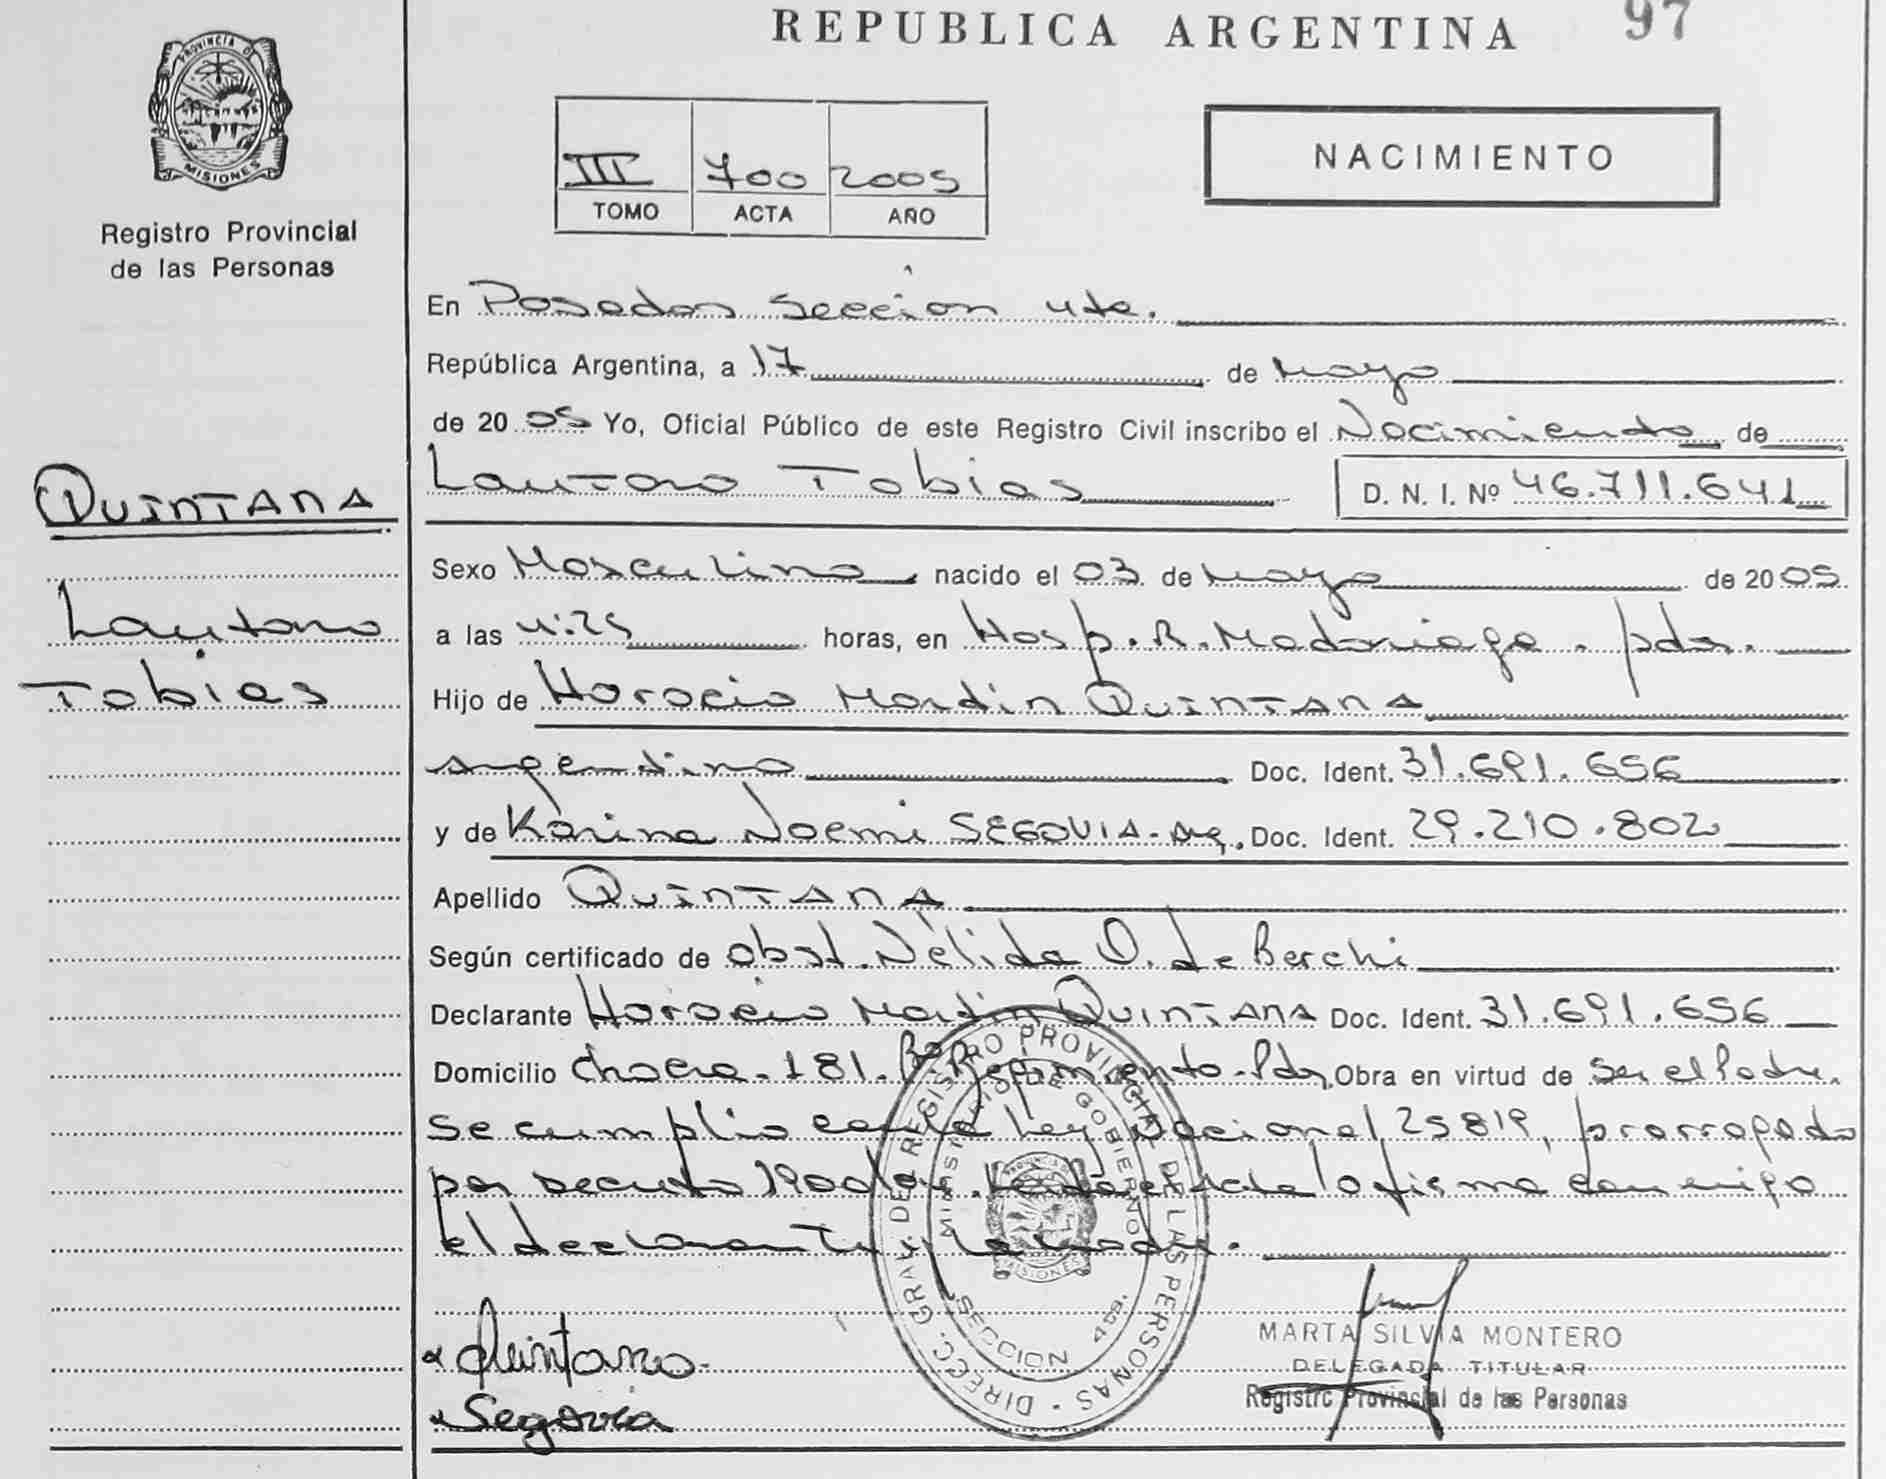 REPUBLICA ARGENTINA 97
PROVINCIA DE
MISIONES
Registro Provincial
de las Personas
III 700 2005
TOMO ACTA AÑO
NACIMIENTO
En Posadas Sección 4ta.
República Argentina, a 17 de Mayo
de 2005 Yo, Oficial Público de este Registro Civil inscribo el Nacimiento de
Lautaro Tobias D. N. I. Nº 46.711.641
QUINTANA
Lautaro
Tobias
Sexo Masculino nacido el 03 de Mayo de 2005
a las 4:25 horas, en Hosp. R. Madariaga. pdas.
Hijo de Horacio Martin QUINTANA
argentino Doc. Ident. 31.691.656
y de Karina Noemi SEGOVIA- Arg. Doc. Ident. 29.210.802
Apellido QUINTANA
Según certificado de obst. Nélida O. de Berchi
Declarante Horacio Martin QUINTANA Doc. Ident. 31.691.656
Domicilio Chacra - 181. Bº Regimiento - Pdas, Obra en virtud de ser el Padre.
se cumplio con la Ley Nacional 25819, prorrogado
por Decreto la firma conmigo
el declarante y la madre.
DIRECC. GRAL. DEL REGISTRO PROVINCIAL DE LAS PERSONAS
MINISTERIO DE GOBIERNO
PROVINCIA DE
MISIONES
SECCION 4ta.
Quintana
Segovia
MARTA SILVIA MONTERO
DELEGADA TITULAR
Registro Provincial de las Personas